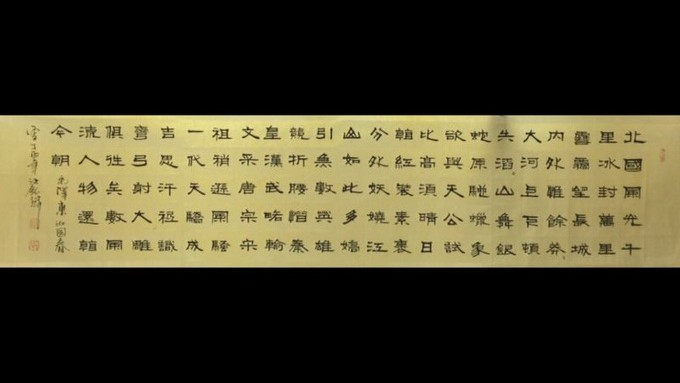 北國風光千
里冰封萬里
雪飄望長城
內外惟餘莽
大河上下頓
失滔山舞銀
蛇原馳蠟象
欲與天公試
比高須晴日
看紅裝素裹
分外妖嬈江
山如此多嬌
引無數英雄
競折腰惜秦
皇漢武略輸
文采唐宗宋
祖稍遜風騷
一代天驕成
吉思汗祗識
彎弓射大雕
俱往矣數風
流人物還看
今朝 毛澤東沁園春
雪丁酉年